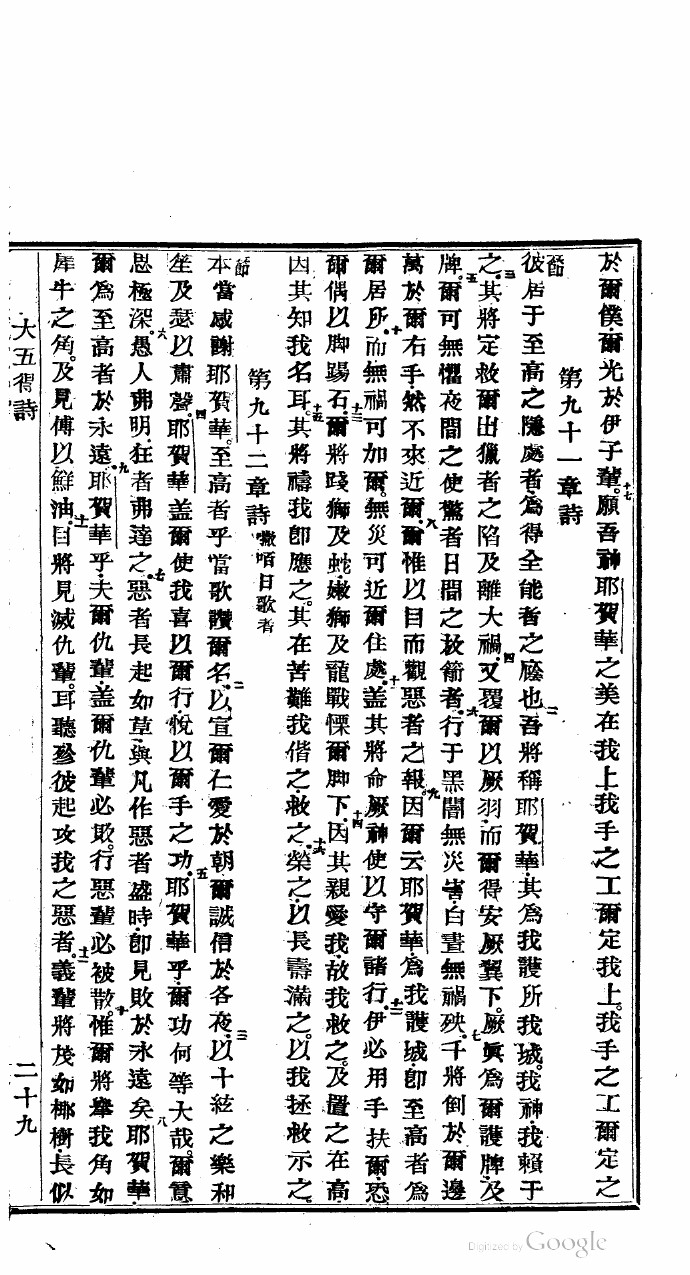 於爾僕爾光於伊子輩。十七願吾神耶賀華之美在我上我手之工爾定我上。我手之工爾定之
第九十一章詩
節彼居于至高之隱處者爲得全能者之廕也二吾將稱耶賀華其爲我護所我城。我神我賴于
之。三其將定救爾出獵者之陷及離大禍。四又覆爾以厥羽而爾得安厥翼下。厥眞爲爾護牌及
牌。五爾可無懼夜間之使驚者日間之放箭者。六行于黑闇無災害白晝無禍殃。七千將倒於爾邊
萬於爾右手然不來近爾。八爾惟以目而觀惡者之報。九因爾云耶賀華爲我護城卽至高者爲
爾居所。十而無禍可加爾。無災可近爾住處。十一蓋其將命厥神使以守爾諸行。十二伊必用手扶爾恐
爾偶以脚踢石。十三爾將踐獅及蛇嫩獅及龍戰慄爾脚下。十四因其親愛我故我救之。及置之在高
因其知我名耳。十五其將禱我卽應之。其在苦難我偕之救之榮之。十六以長壽滿之。以我拯救示之。
第九十二章詩 嘥咟日歌者
節本當感謝耶賀華。至高者乎當歌讚爾名。二以宣爾仁愛於朝爾誠信於各夜。三以十絃之樂和
笙及瑟以肅聲。四耶賀華蓋爾使我喜以爾行悅以爾手之功。五耶賀華乎爾功何等大哉。爾意
思極深。六愚人弗明狂者弗達之。七惡者長起如草與凡作惡者盛時卽見敗於永遠矣八耶賀華
爾爲至高者於永遠。九耶賀華乎夫爾仇輩蓋爾仇輩必敗。行惡輩必被散。十惟爾將舉我角如
犀牛之角。及見傅以鮮油。十一目將見滅仇輩。耳聽殄彼起攻我之惡者。十二義輩將茂如椰樹長似
大五得詩
二十九
Digitized by Google